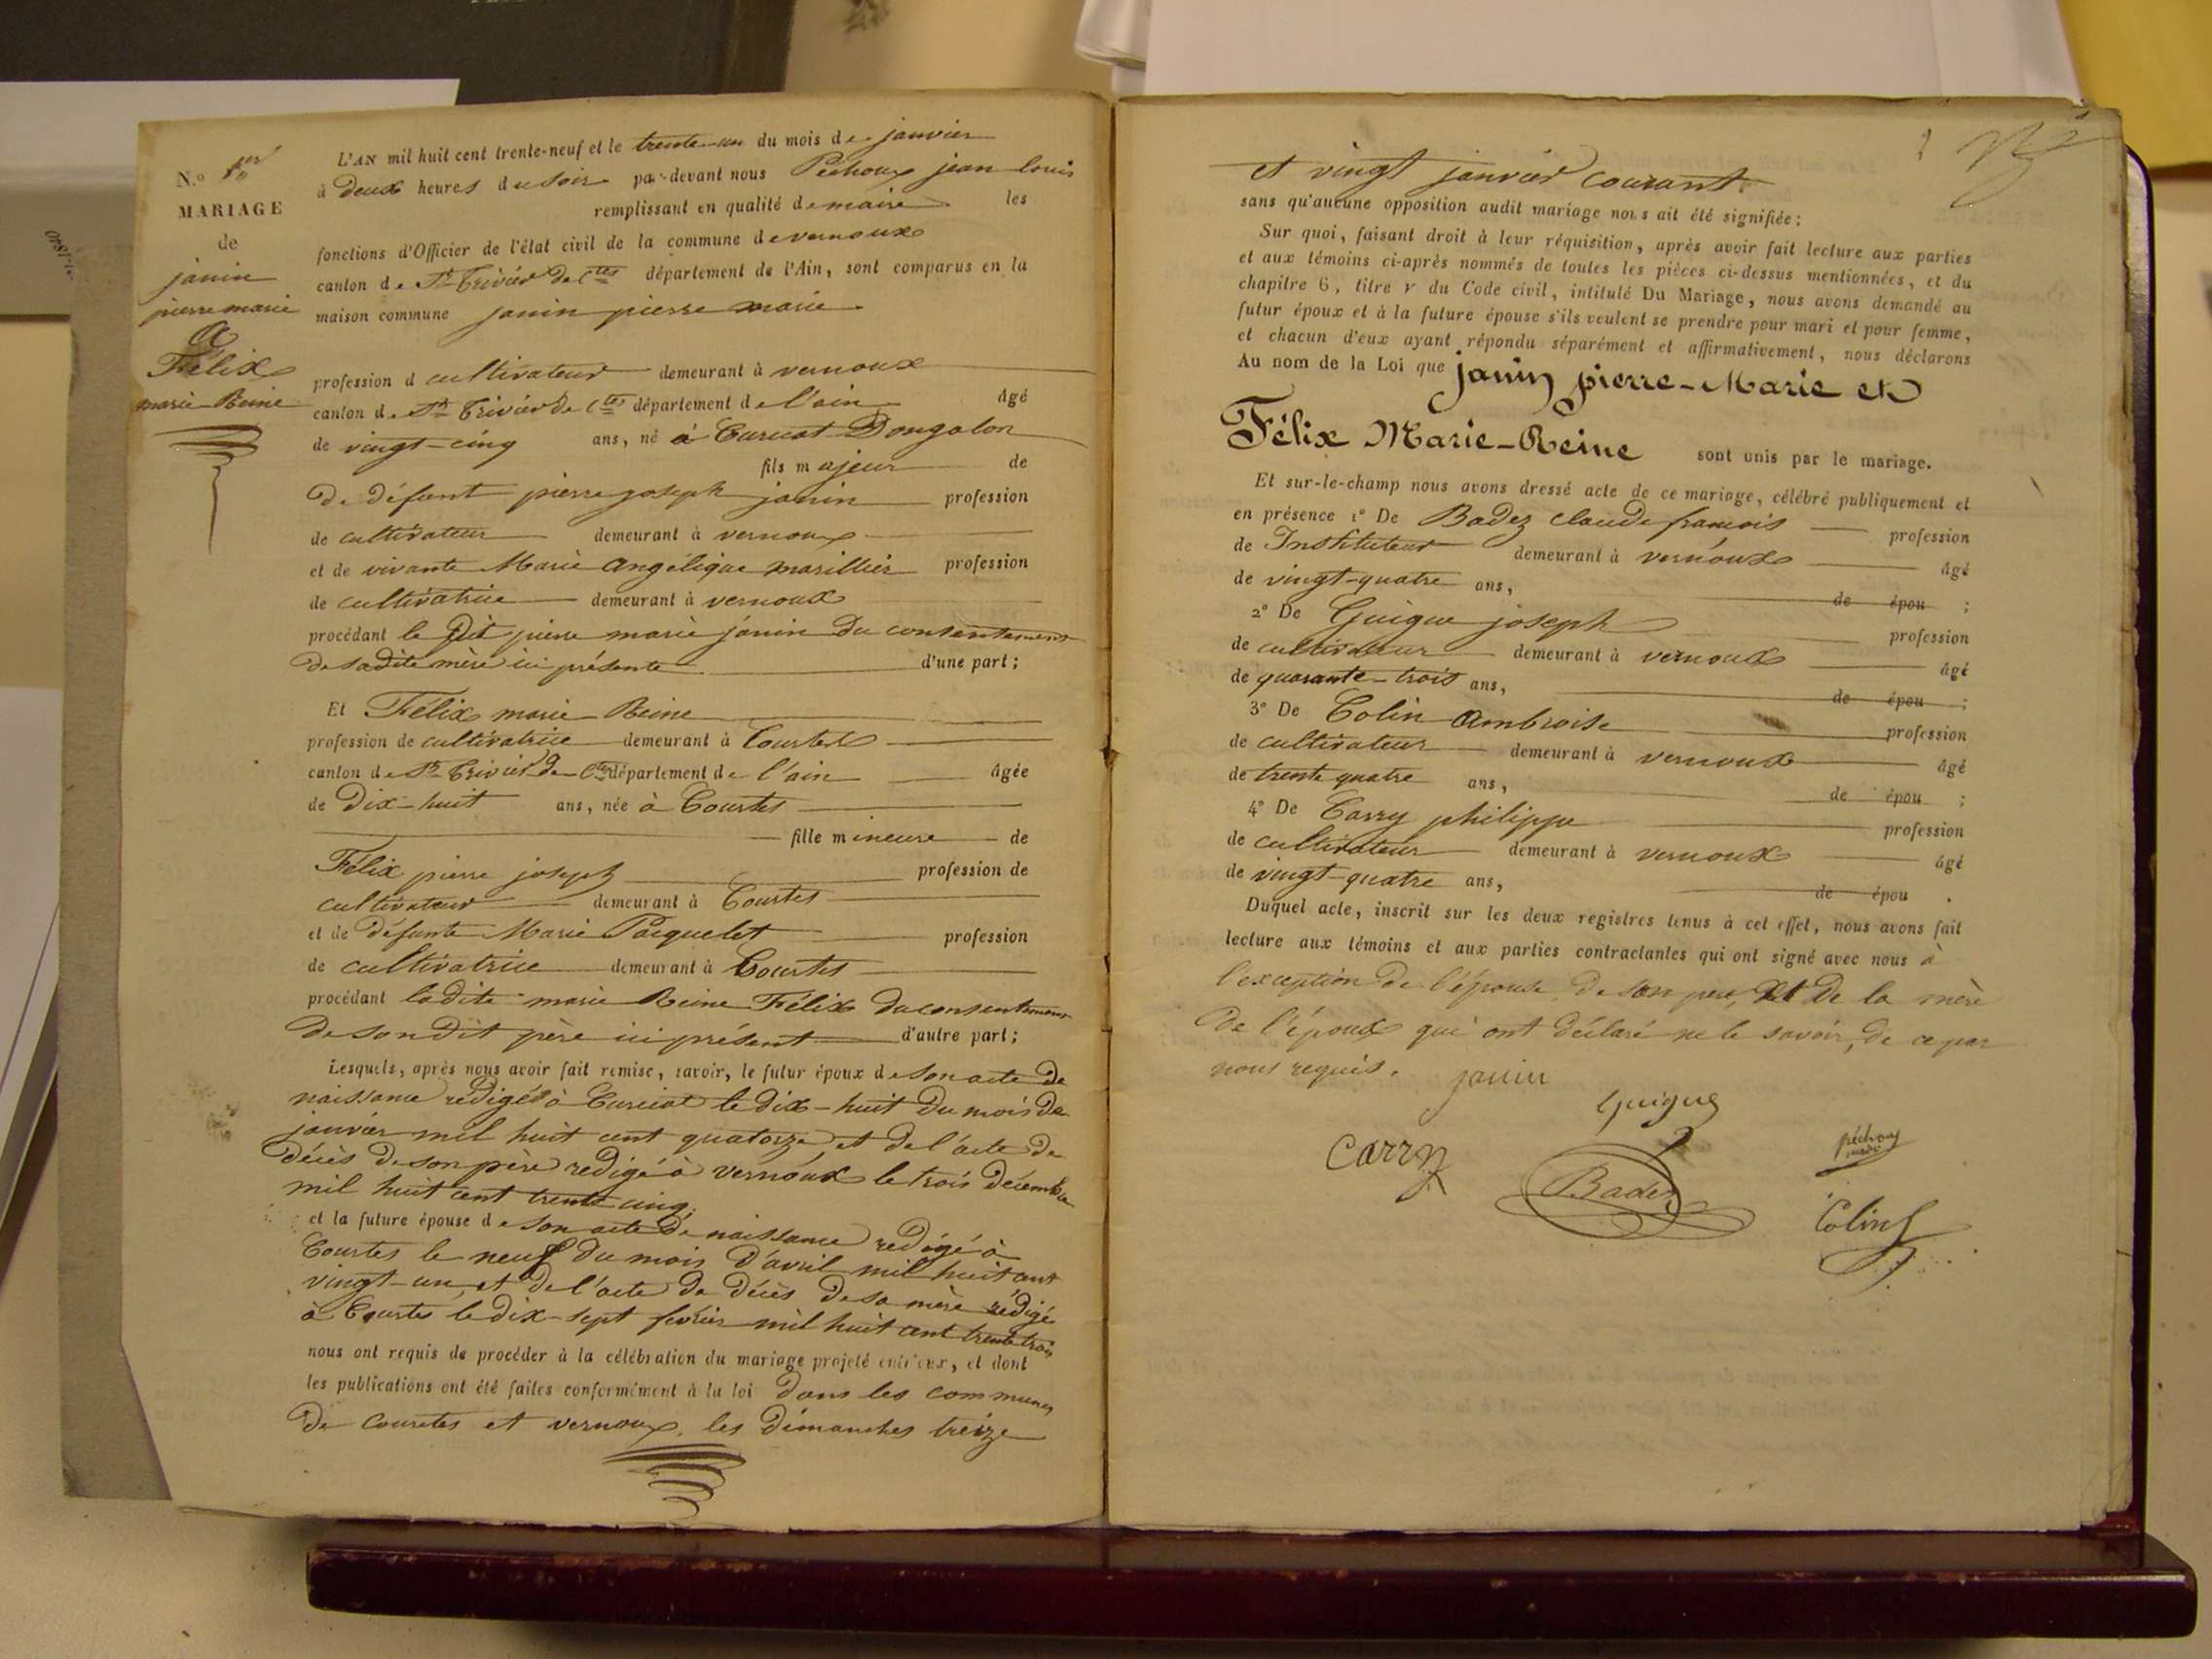 N.o 1er
MARIAGE
de
janin
pierre marie
&
Félix
marie Reine
L'AN mil huit cent trente-neuf et le trente-un du mois de janvier
à deux heures du soir par-devant nous Péchoux jean louis
remplissant en qualité de maire les
fonctions d'Officier de l'état civil de la commune de vernoux
canton de St Trivier de Ctes département de l'Ain, sont comparus en la
maison commune janin pierre marie
profession d cultivateur demeurant à vernoux
canton de St Trivier de Ctes département de l'ain âgé
de vingt-cinq ans, né à Curciat Dongalon
fils majeur de
De défunt pierre joseph janin profession
de cultivateur demeurant à vernoux
et de vivante Marie Angélique marillier profession
de cultivatrice demeurant à vernoux
procédant le dit pierre marie janin du consentement
de sadite mère ici présente d'une part;
Et Félix marie Reine
profession de cultivatrice demeurant à Courtes
canton de St Trivier de Ctes département de l'ain âgée
de Dix-huit ans, née à Courtes
fille mineure de
Félix pierre joseph profession de
cultivateur demeurant à Courtes
et de défunte Marie Pacquelet profession
de cultivatrice demeurant à Courtes
procédant ladite marie Reine Félix du consentement
de son dit père ici présent d'autre part;
Lesquels, après nous avoir fait remise, savoir, le futur époux de son acte de
naissance redigé à Curciat le dix-huit du mois de
janvier mil huit cent quatorze et de l'acte de
décès de son père redigé à vernoux le trois décembre
mil huit cent trente cinq;
et la future épouse de son acte de naissance redigé à
Courtes le neuf du mois d'avril mil huit cent
vingt-un, et de l'acte de décès de sa mère rédigé
à Courtes le dix-sept février mil huit cent trente trois
nous ont requis de procéder à la célébration du mariage projeté entr'eux, et dont
les publications ont été faites conformément à la loi dans les communes
de Courtes et vernoux, les dimanches treize
et vingt janvier courant.
sans qu'aucune opposition audit mariage nous ait été signifiée;
Sur quoi, faisant droit à leur réquisition, après avoir fait lecture aux parties
et aux témoins ci-après nommés de toutes les pièces ci-dessus mentionnées, et du
chapitre 6, titre v du Code civil, intitulé Du Mariage, nous avons demandé au
futur époux et à la future épouse s'ils veulent se prendre pour mari et pour femme,
et chacun d'eux ayant répondu séparément et affirmativement, nous déclarons
Au nom de la Loi que janin pierre-Marie et
Félix Marie-Reine sont unis par le mariage.
Et sur-le-champ nous avons dressé acte de ce mariage, célébré publiquement et
en présence 1° De Badez claude francois profession
de Instituteur demeurant à vernoux âgé
de vingt-quatre ans, de épou ;
2° De Guigue joseph profession
de cultivateur demeurant à vernoux âgé
de quarante-trois ans, de épou ;
3° De Colin Ambroise profession
de cultivateur demeurant à vernoux âgé
de trente quatre ans, de épou ;
4° De Carry philippe profession
de cultivateur demeurant à vernoux âgé
de vingt-quatre ans, de épou .
Duquel acte, inscrit sur les deux registres tenus à cet effet, nous avons fait
lecture aux témoins et aux parties contractantes qui ont signé avec nous à
l'exception de l'épouse de son pere, et de la mère
de l'époux qui ont déclaré ne le savoir, de ce par
nous requis.
janin
Guigue
Carry
Badez
péchoux
maire
Colin